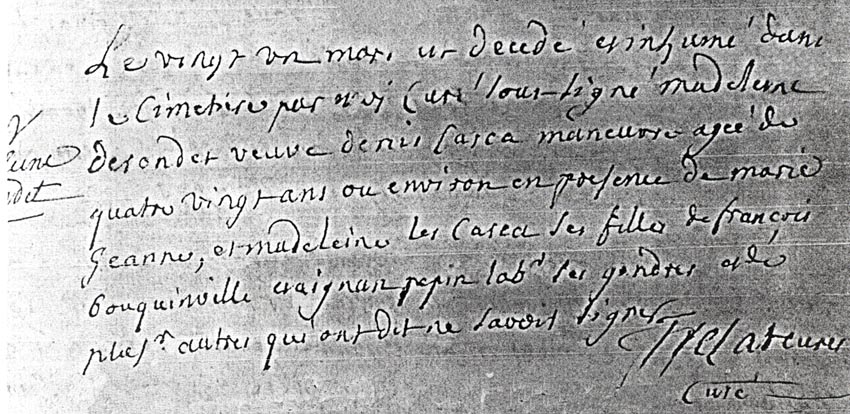 Le vingt un mars est decedé et inhumé dans
le Cimetiere par moi Curé sous-signé madeleine
desondet veuve denis Casca maneuvre agée de
quatre vingt ans ou environ en presence de marie
Geanne, et madeleine les Casca ses filles de françois
bouquinville et aignan pepin lab.r ses gendres et de
plus.rs autres qui ont dit ne savoir signer
Curé